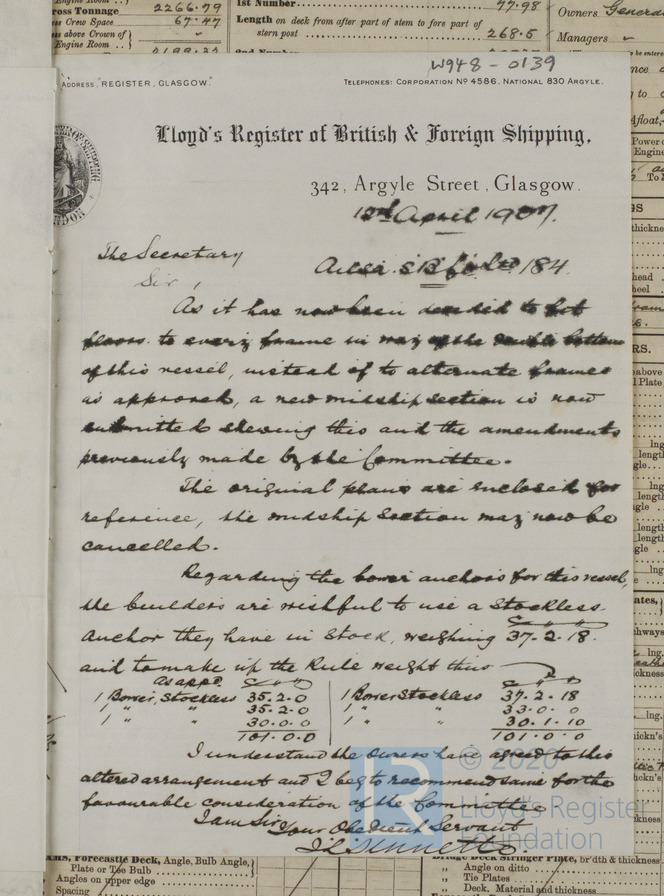 ross Tonnage 2266.79
ss Crew Space 67.47
ss above Crown of
Engine Room ..
1st Number 77.98
Length on deck from after part of stem to fore part of
stern post 268.5
2nd Number
Owners General
Managers
W948-0139
ADDRESS, "REGISTER, GLASGOW."
TELEPHONES: CORPORATION Nº 4586. NATIONAL 830 ARGYLE.
Lloyd's Register of British & Foreign Shipping,
342, Argyle Street, Glasgow.
April 1907.
The Secretary
Ailsa S B Co Ltd 184
Sir,
As it has now been decided to fit
floors to every frame in way of the double bottom
of this vessel, instead of to alternate frames
as approved, a new midship section is now
submitted shewing this and the amendments
previously made by the Committee.
The original plans are enclosed for
reference, the midship section may now be
cancelled.
Regarding the bower anchors for this vessel,
the builders are wishful to use a Stockless
Anchor they have in Stock, weighing 37-2-18
and to make up the Rule weight thus
as appd.
1 Bower, Stockless 35.2.0 1 Bower Stockless 37-2-18
1 " " 35-2-0 1 " " 33-0-0
1 " " 30.0.0 1 " " 30.1.10
101.0.0 101.0.0
I understand the Owners have agreed to this
altered arrangement and I beg to recommend same for the
favourable consideration of the Committee
I am Sir,
Your Obedient Servant
© 2020
Lloyd's Register
Foundation
MS, FORECASTLE DECK, Angle, Bulb Angle,
Plate or Tee Bulb
Angles on upper edge
Spacing
Bridge Deck Stringer Plate, br'dth & thickness
" Angle on ditto
" Tie Plates
" Deck, Material and thickness